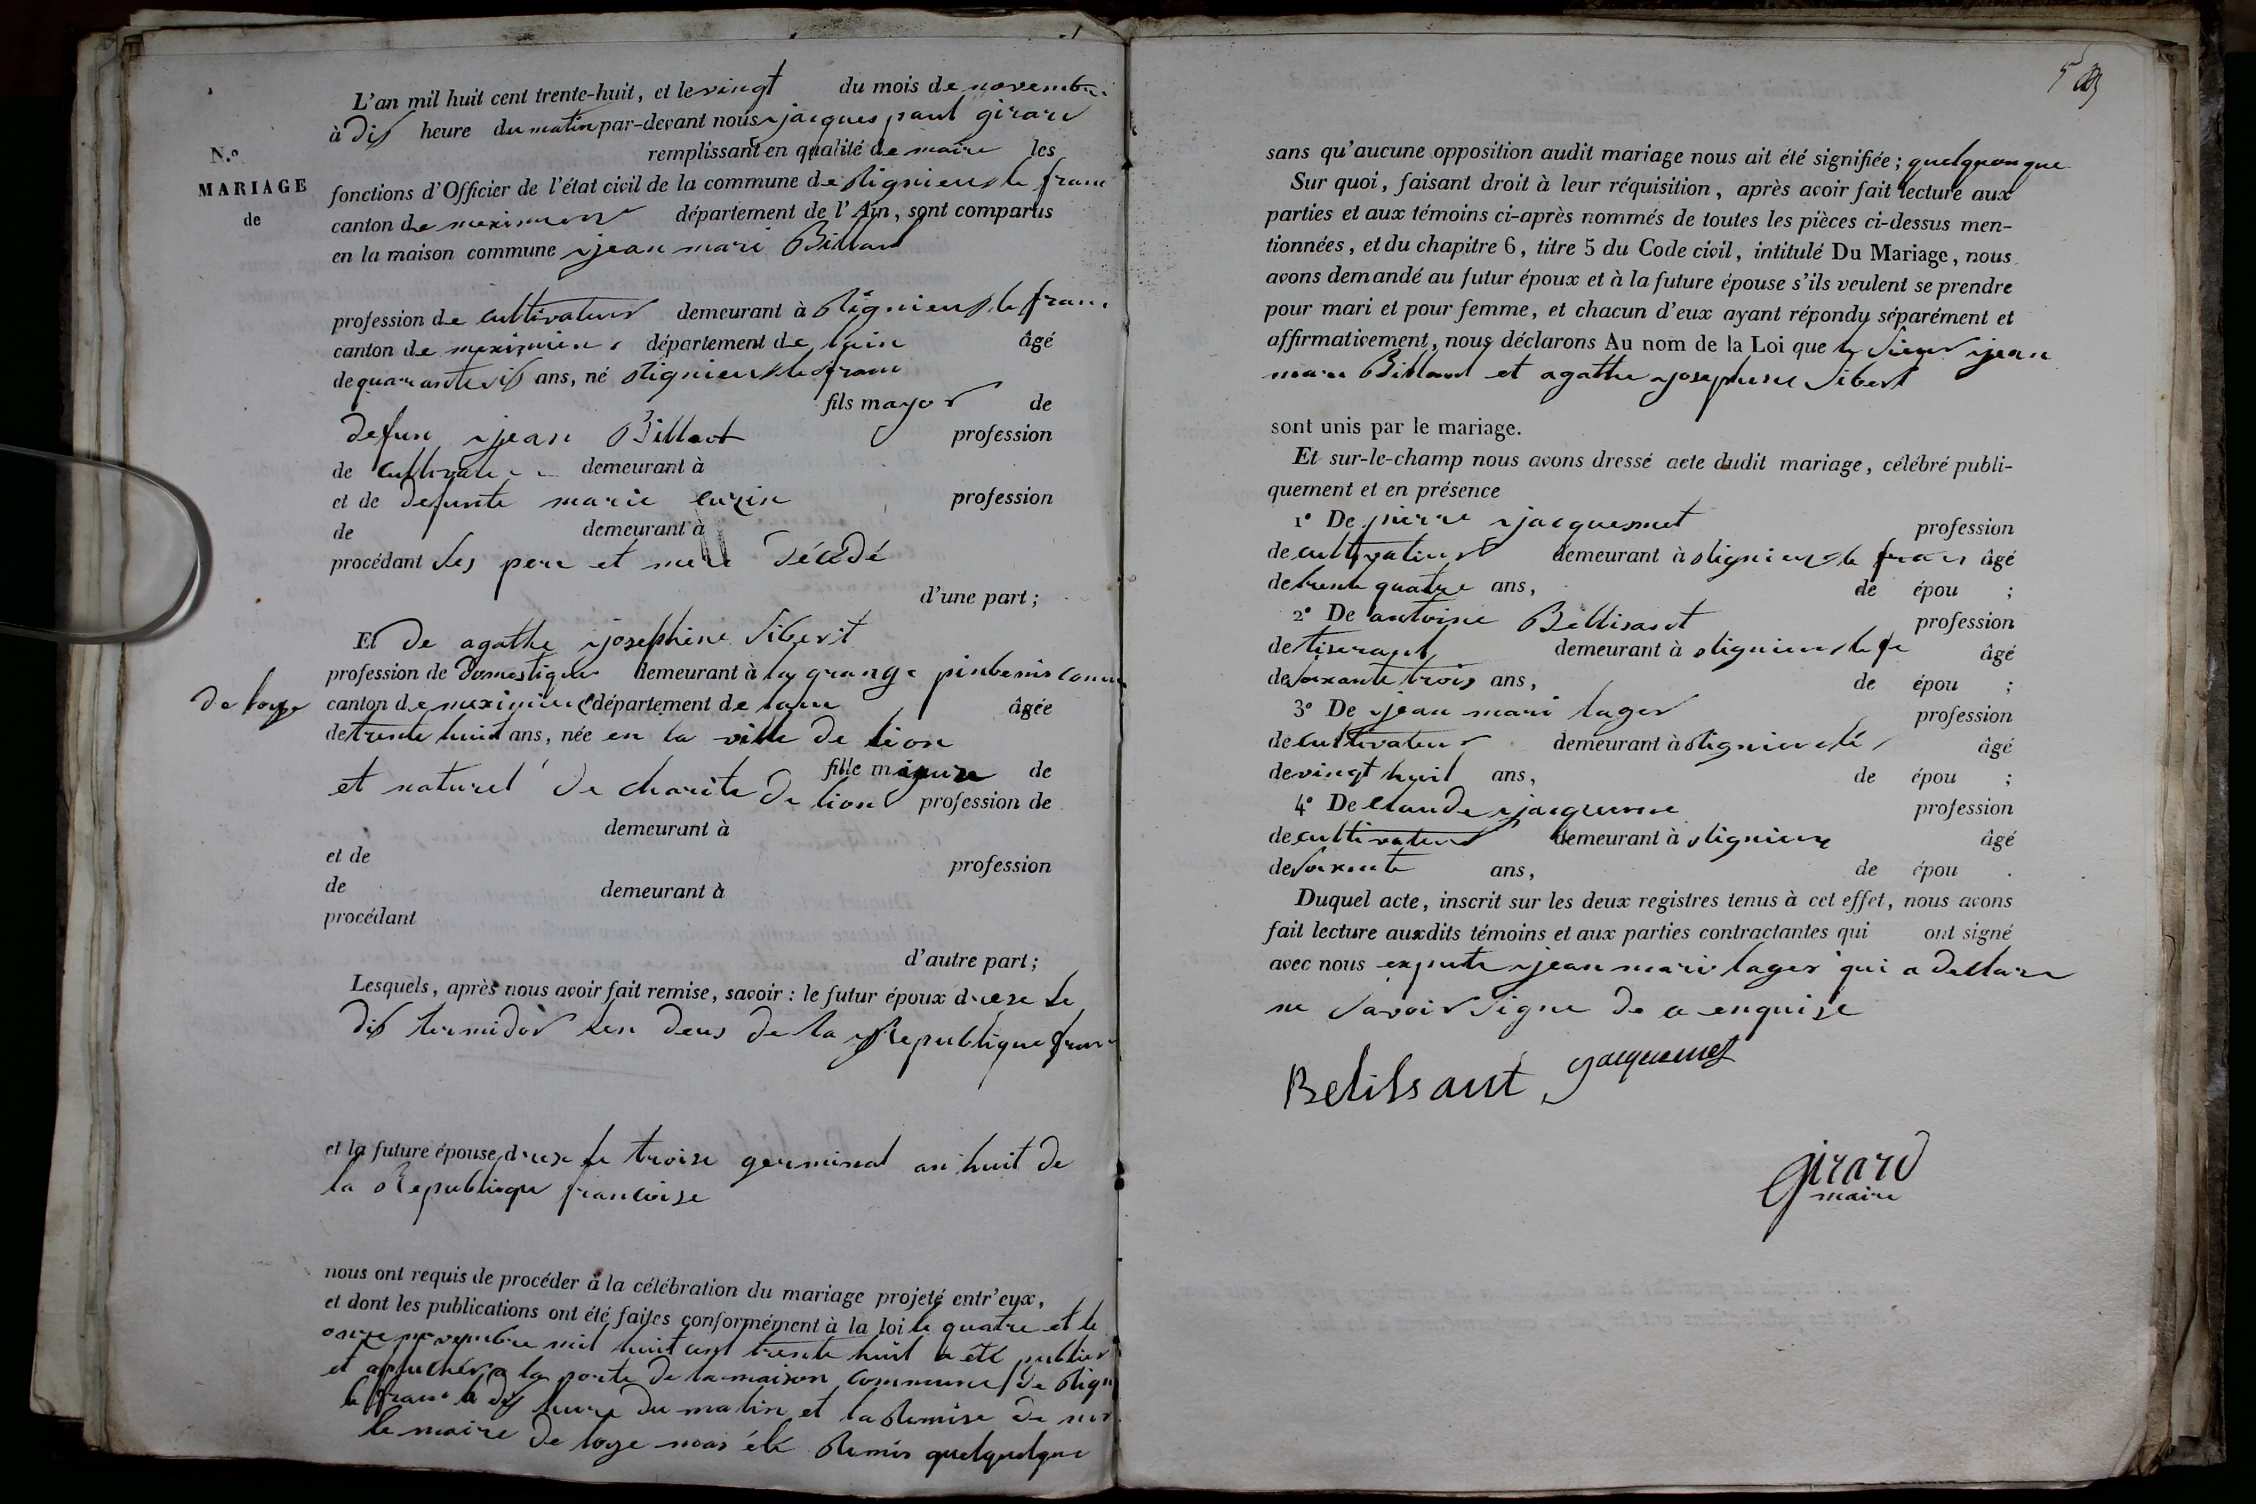 L'an mil huit cent trente-huit, et le vingt du mois de novembre
à dis heure du matin par-devant nous jacques paul girard
N.o
remplissant en qualité de maire les
MARIAGE
fonctions d'Officier de l'état civil de la commune de Rignieux le franc
de
canton de meximieux département de l'Ain, sont comparus
en la maison commune jean mari Billard
profession de cultivateur demeurant à Rignieux le franc
canton de meximieux département de lain âgé
de quarante sis ans, né Rignieux le franc
fils mayor de
defun jean Billaot profession
de cultivateur demeurant à
et de defunte marie cuzin profession
de demeurant à
procédant les pere et mere décédé
d'une part;
Et de agathe josephine Sibert
profession de domestique demeurant à la grange pinbenis comm
de loye canton de meximieux département de lain âgée
de trente huit ans, née en la ville de lion
fille migure de
et naturel de charite de lion profession de
demeurant à
et de profession
de demeurant à
procédant
d'autre part;
Lesquels, après nous avoir fait remise, savoir: le futur époux drese le
dis termidor len deus de la Republique franc
et la future épouse drese le troise germinal an huit de
la Republique francoise
nous ont requis de procéder à la célébration du mariage projeté entr'eux,
et dont les publications ont été faites conformément à la loi le quatre et le
onze novembre mil huit cent trente huit a été publier
et afficher a la porte de la maison commune de Rign
le franc a dis heure du matin et la Remise de
le maire de loye nous été Remis quelquelque
sans qu'aucune opposition audit mariage nous ait été signifiée; quelquonque
Sur quoi, faisant droit à leur réquisition, après avoir fait lecture aux
parties et aux témoins ci-après nommés de toutes les pièces ci-dessus men-
tionnées, et du chapitre 6, titre 5 du Code civil, intitulé Du Mariage, nous
avons demandé au futur époux et à la future épouse s'ils veulent se prendre
pour mari et pour femme, et chacun d'eux ayant répondu séparément et
affirmativement, nous déclarons Au nom de la Loi que le sieur jean
mari Billard et agathe josephine Sibert
sont unis par le mariage.
Et sur-le-champ nous avons dressé acte dudit mariage, célébré publi-
quement et en présence
1° De pierre jacquemet profession
de cultivateur demeurant à Rignieux le franc âgé
de trente quatre ans, de épou ;
2° De antoine Bellisant profession
de tiserand demeurant à Rignieux le fr âgé
de soixante trois ans, de épou ;
3° De jean mari lager profession
de cultivateur demeurant à Rignieux le âgé
de vingt huit ans, de épou ;
4° De claude jacqueme profession
de cultivateur demeurant à Rignieux âgé
de soixante ans, de épou .
Duquel acte, inscrit sur les deux registres tenus à cet effet, nous avons
fait lecture auxdits témoins et aux parties contractantes qui ont signé
avec nous expente jean mari lager qui a dellare
ne savoir signe de ce enquise
Belissant jacquemet
girard
maire